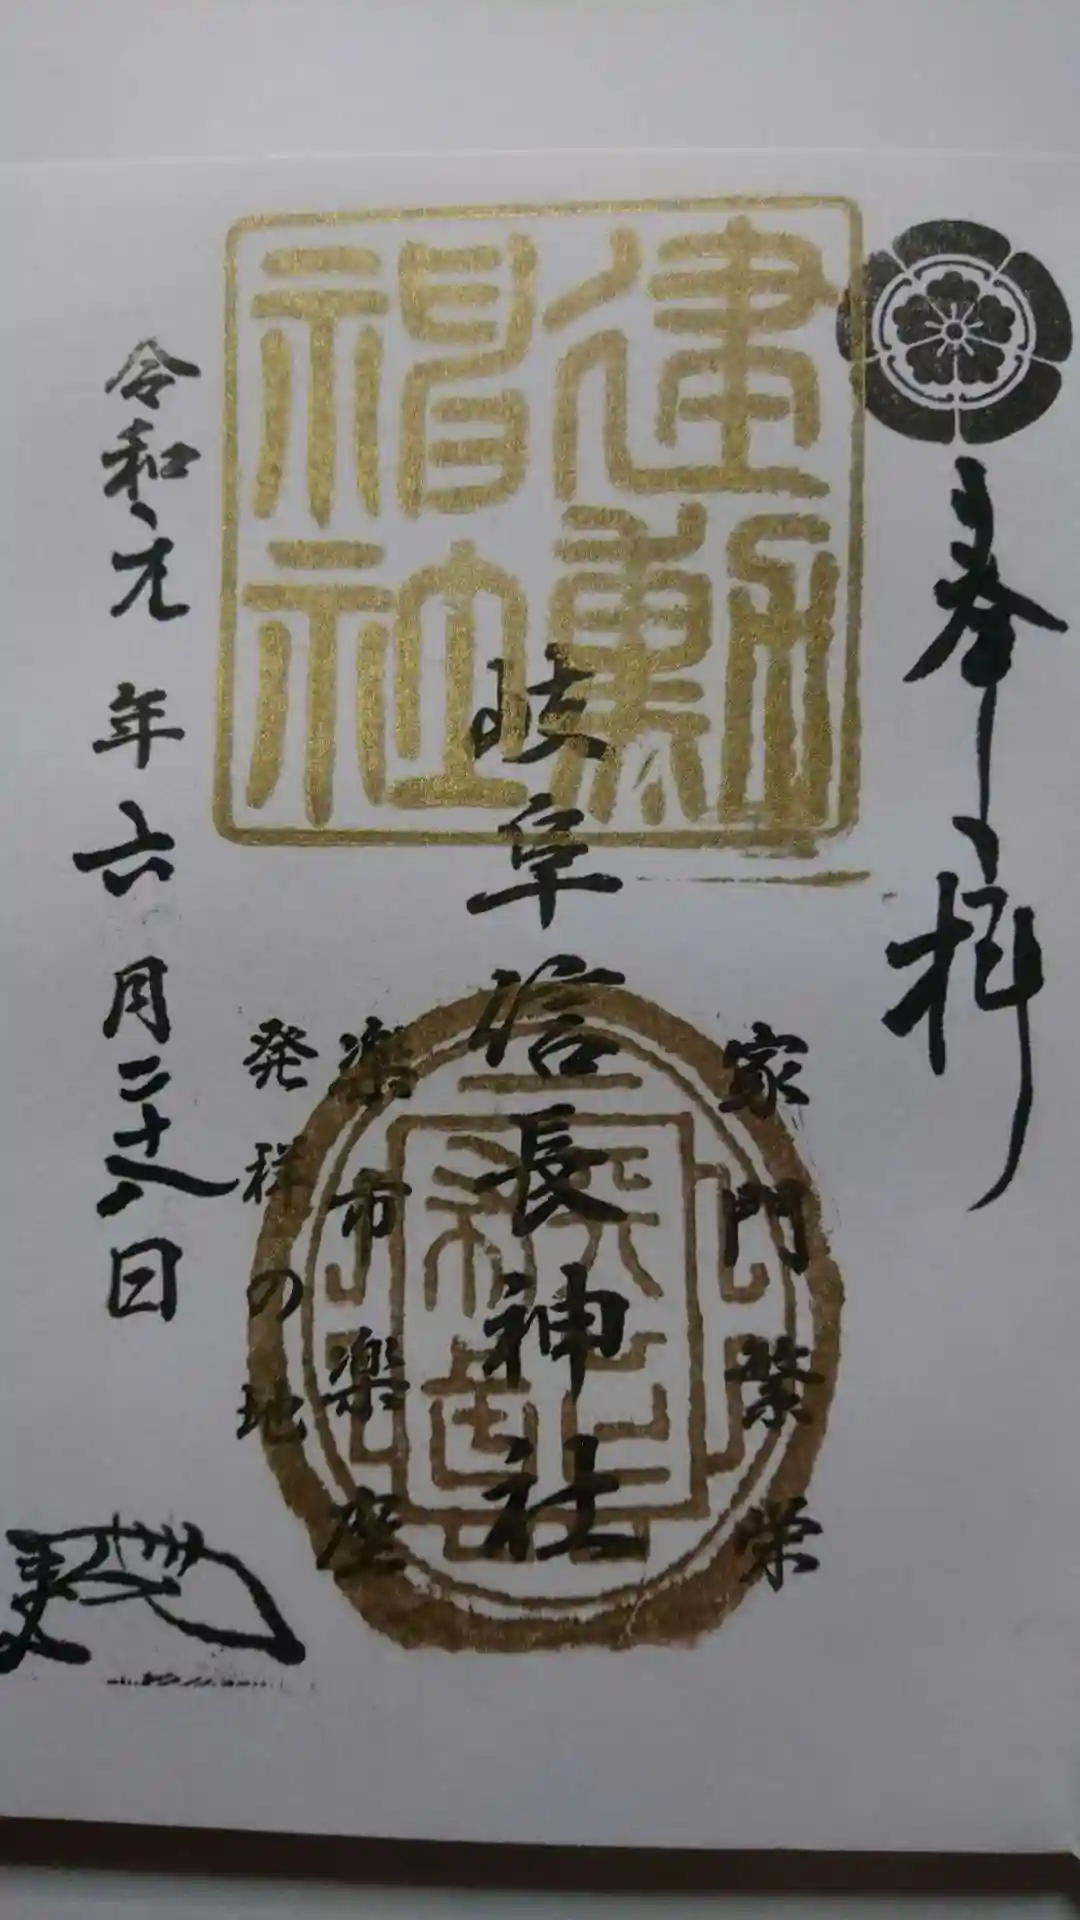 奉拝
建勲
神社
家門繁栄
岐阜信長神社
楽市楽座
発祥の地
令和元年六月二十八日
天下布武